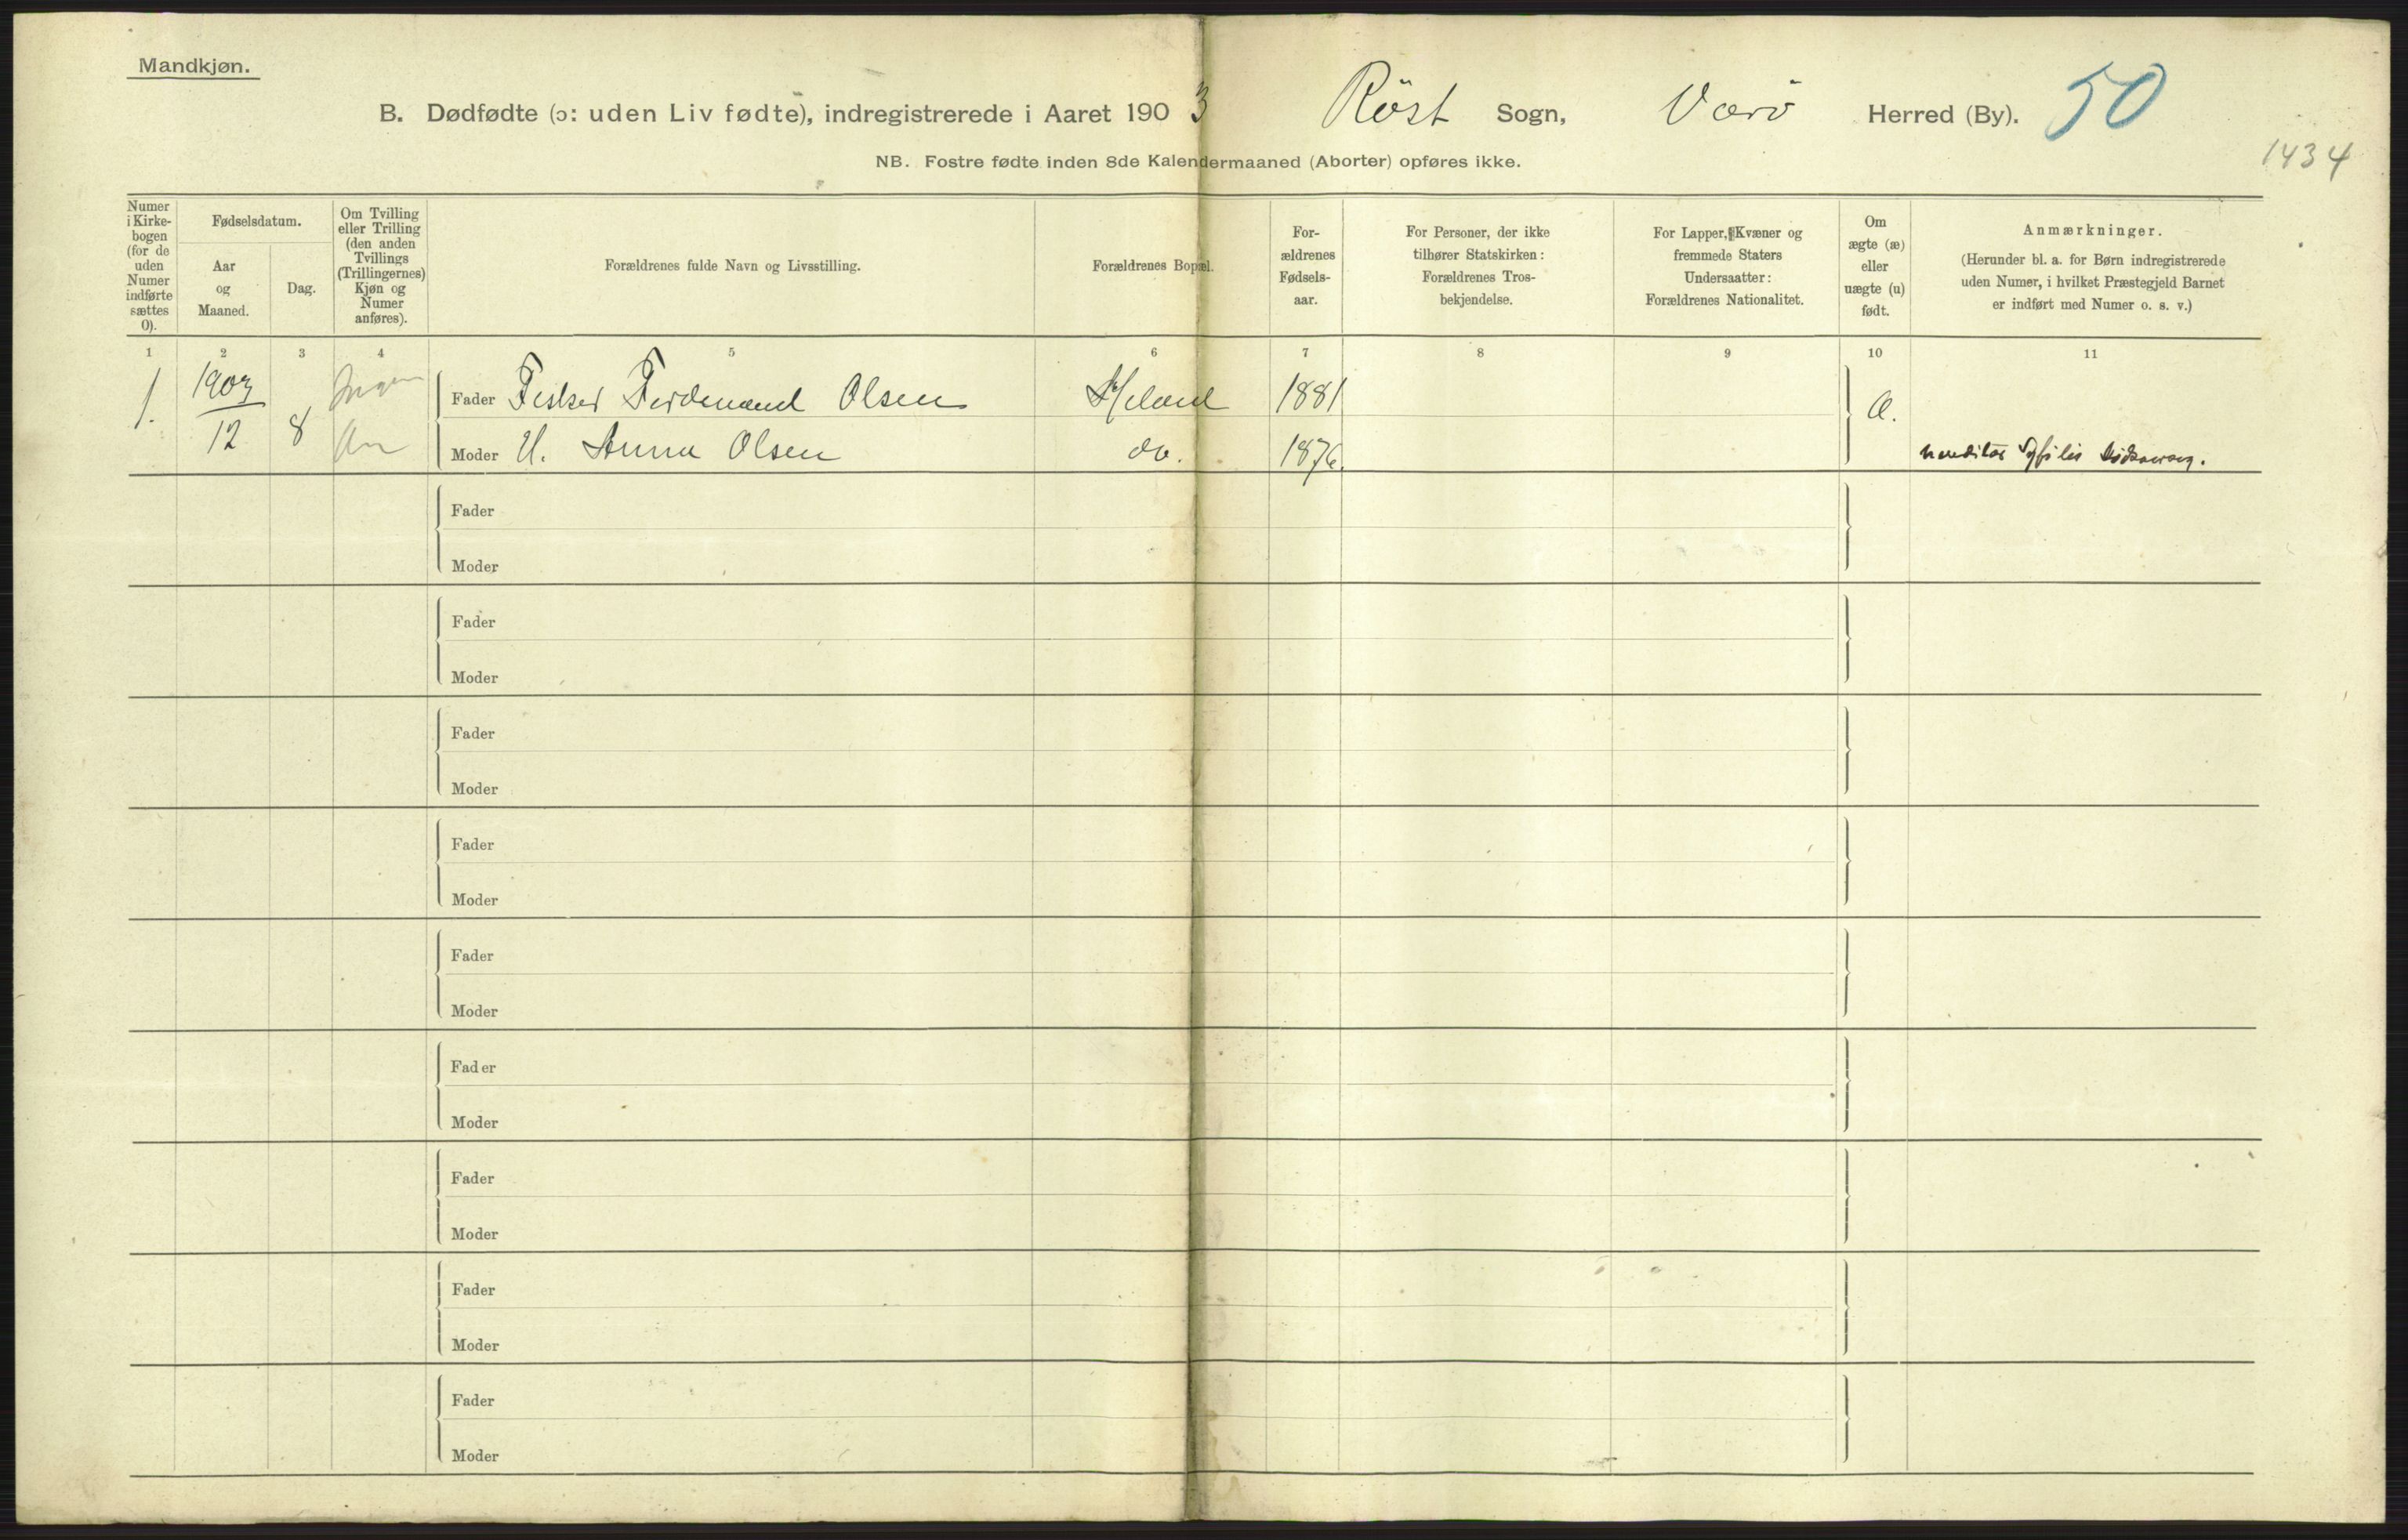 Mandkjøn.
B. Dødfødte (ɔ: uden Liv fødte), indregistrerede i Aaret 1903 Röst Sogn, Værö Herred (By). 50
1434
NB. Fostre fødte inden 8de Kalendermaaned (Aborter) opføres ikke.
Numer
i Kirke-
bogen
(for de
uden
Numer
indførte
sættes
0).
Fødselsdatum.
Aar
og
Maaned.
Dag.
Om Tvilling
eller Trilling
(den anden
Tvillings
(Trillingernes)
Kjøn og
Numer
anføres).
Forældrenes fulde Navn og Livsstilling.
Forældrenes Bopæl.
For-
ældrenes
Fødsels-
aar.
For Personer, der ikke
tilhører Statskirken:
Forældrenes Tros-
bekjendelse.
For Lapper, Kvæner og
fremmede Staters
Undersaatter:
Forældrenes Nationalitet.
Om
ægte (æ)
eller
uægte (u)
født.
Anmærkninger.
(Herunder bl. a. for Børn indregistrerede
uden Numer, i hvilket Præstegjeld Barnet
er indført med Numer o. s. v.)
1 2 3 4 5 6 7 8 9 10 11
1. 1903 Fader Fisker Ferdinand Olsen 1881 Æ.
12 8 Moder H. Anna Olsen do. 1876. Syfilis
Fader
Moder
Fader
Moder
Fader
Moder
Fader
Moder
Fader
Moder
Fader
Moder
Fader
Moder
Fader
Moder
Fader
Moder